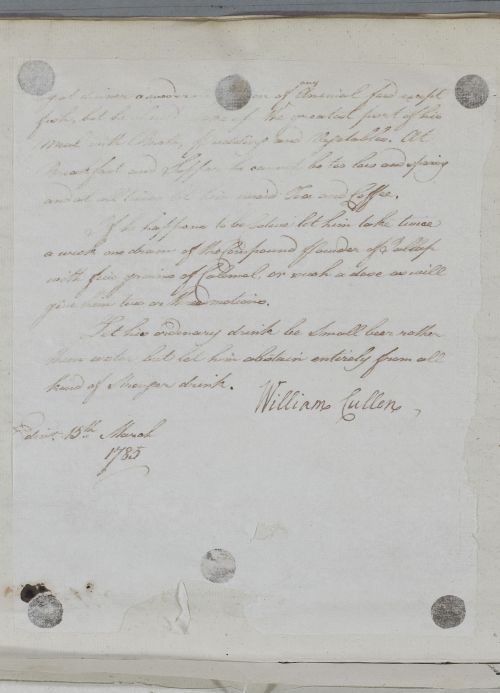 of any Animal food except
fish, but he of the greatest part of his
meat with Broths, Puddings and Vegetables. At
Breakfast and Supper he cannot be too low and sparing
and at all times let him avoid Tea and Coffee.
If he happens to be Costive let him take twice
a week one dram of the Compound Powder of Jallap
with five grains of Calomel, or such a dose as will
give him two or three motions.
Let his ordinary drink be Small beer rather
than water but let him abstain entirely from all
kind of Stronger drink.
William Cullen
Edinr. 15th March
1785